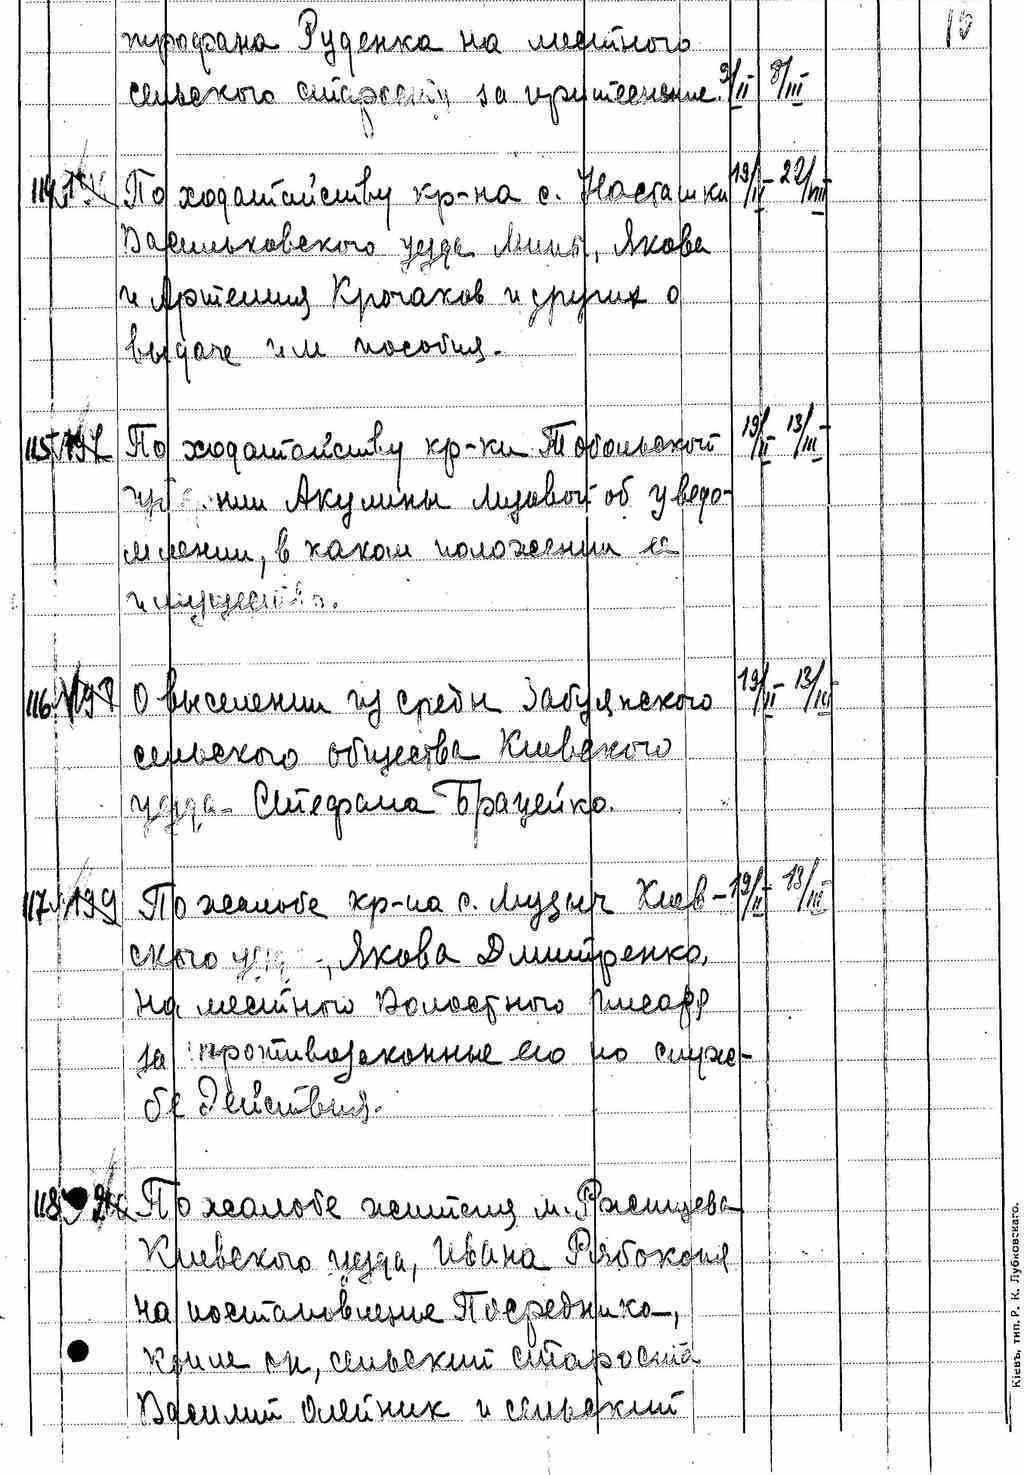 15
Трофана Руденка на местного
сельского старосту за притеснение. 9/II 8/III
114. По ходатайству кр-на с. Насташки 19/II - 22/VIII
Васильковского уезда Мины, Якова
и Артемия Крочаков и других о
выдаче им пособия.
115. 197 По ходатайству кр-ки Тобольской 19/II - 13/III
губернии Акулины Лизовой об уведо-
млении, в каком положении ее
имущество.
116. 198 О выселении из среды Забуянского 19/II - 13/III
сельского общества Киевского
уезда Стефана Брацейко.
117. 199 По жалобе кр-на с. Музыч Киев- 19/II 13/III
ского уезда, Якова Дмитренко,
на местного волостного писаря
за противозаконные его по служ-
бе действия.
118. По жалобе жителя м. Ржищева
Киевского уезда, Ивана Рябоконя
на постановление Посредника,
сельский староста
Василий Олейник и сельский
Кіевъ, тип. Р. К. Лубковскаго.